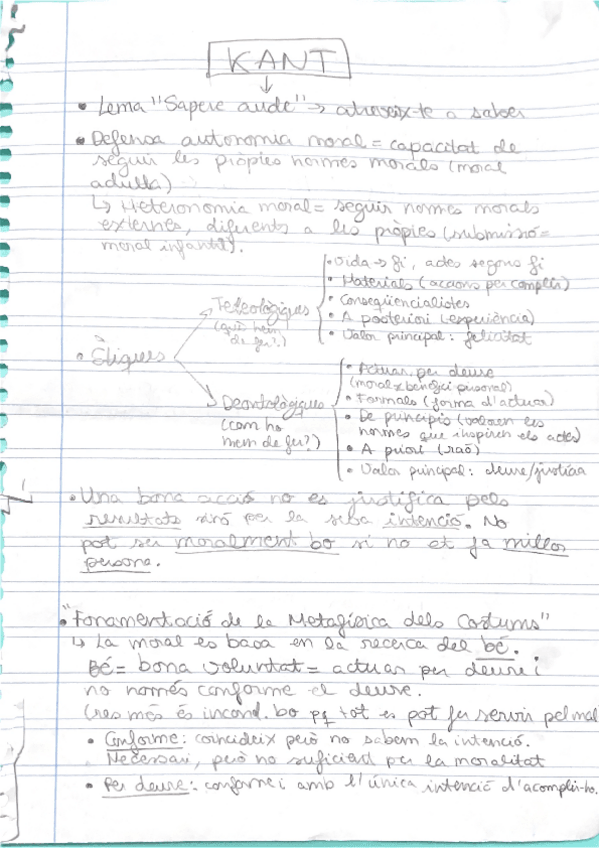 KANT
• Lema "Sapere aude" → atreveix-te a saber
• Defensa autonomia moral = capacitat de
seguir les pròpies normes morals (moral
adulta)
↳ Heteronomia moral = seguir normes morals
externes, diferents a les pròpies (submissió =
moral infantil).
• Ètiques
Teleològiques
(què hem
de fer?)
• Vida → fi, actes segons fi
• Materials (accions per complir)
• Conseqüencialistes
• A posteriori (experiència)
• Valor principal: felicitat
Deontològiques
(com ho
hem de fer?)
• Actuar per deure
(moral x benefici personal)
• Formals (forma d'actuar)
• De principis (valoren les
normes que inspiren els actes)
• A priori (raó)
• Valor principal: deure/justícia
• Una bona acció no es justifica pels
resultats sinó per la seba intenció. No
pot ser moralment bo si no et fa millor
persona.
• "Fonamentació de la Metafísica dels Costums"
↳ La moral es basa en la recerca del bé.
Bé = bona voluntat = actuar per deure i
no només conforme el deure.
(res més és incond. bo pq tot es pot fer servir pel mal
• Conforme: coincideix però no sabem la intenció.
Necessari, però no suficient per la moralitat
• Per deure: conforme i amb l'única intenció d'acomplir-ho.